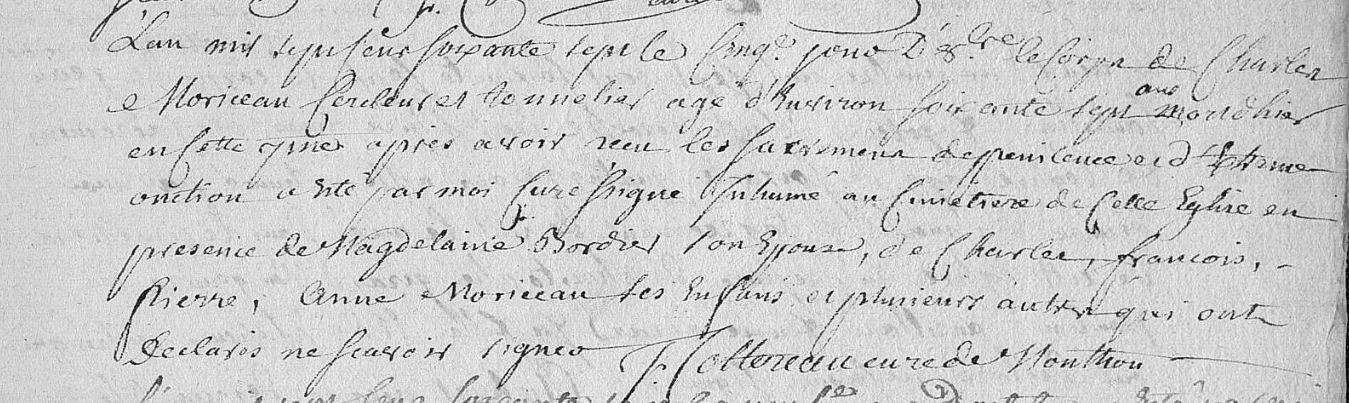 L'an mil sept cens soixante sept le Cinq.e jour D'8.bre le Corps de Charles
Moriceau Cercleur et tonnelier agé d'Environ soixante sept ans mort d'hier
en Cette après avoir reçu les sacremens de penitence et d'Extrême
onction a été par moi Curé ssigné Inhumé au Cimetiere de Cette Eglise en
presence de Magdelaine Bordier son Epouze, de Charles, François,
Pierre, Anne Moriceau ses Enfans et plusieurs autres qui ont
Declarés ne scavoir signer Cottereau curé de Monthou